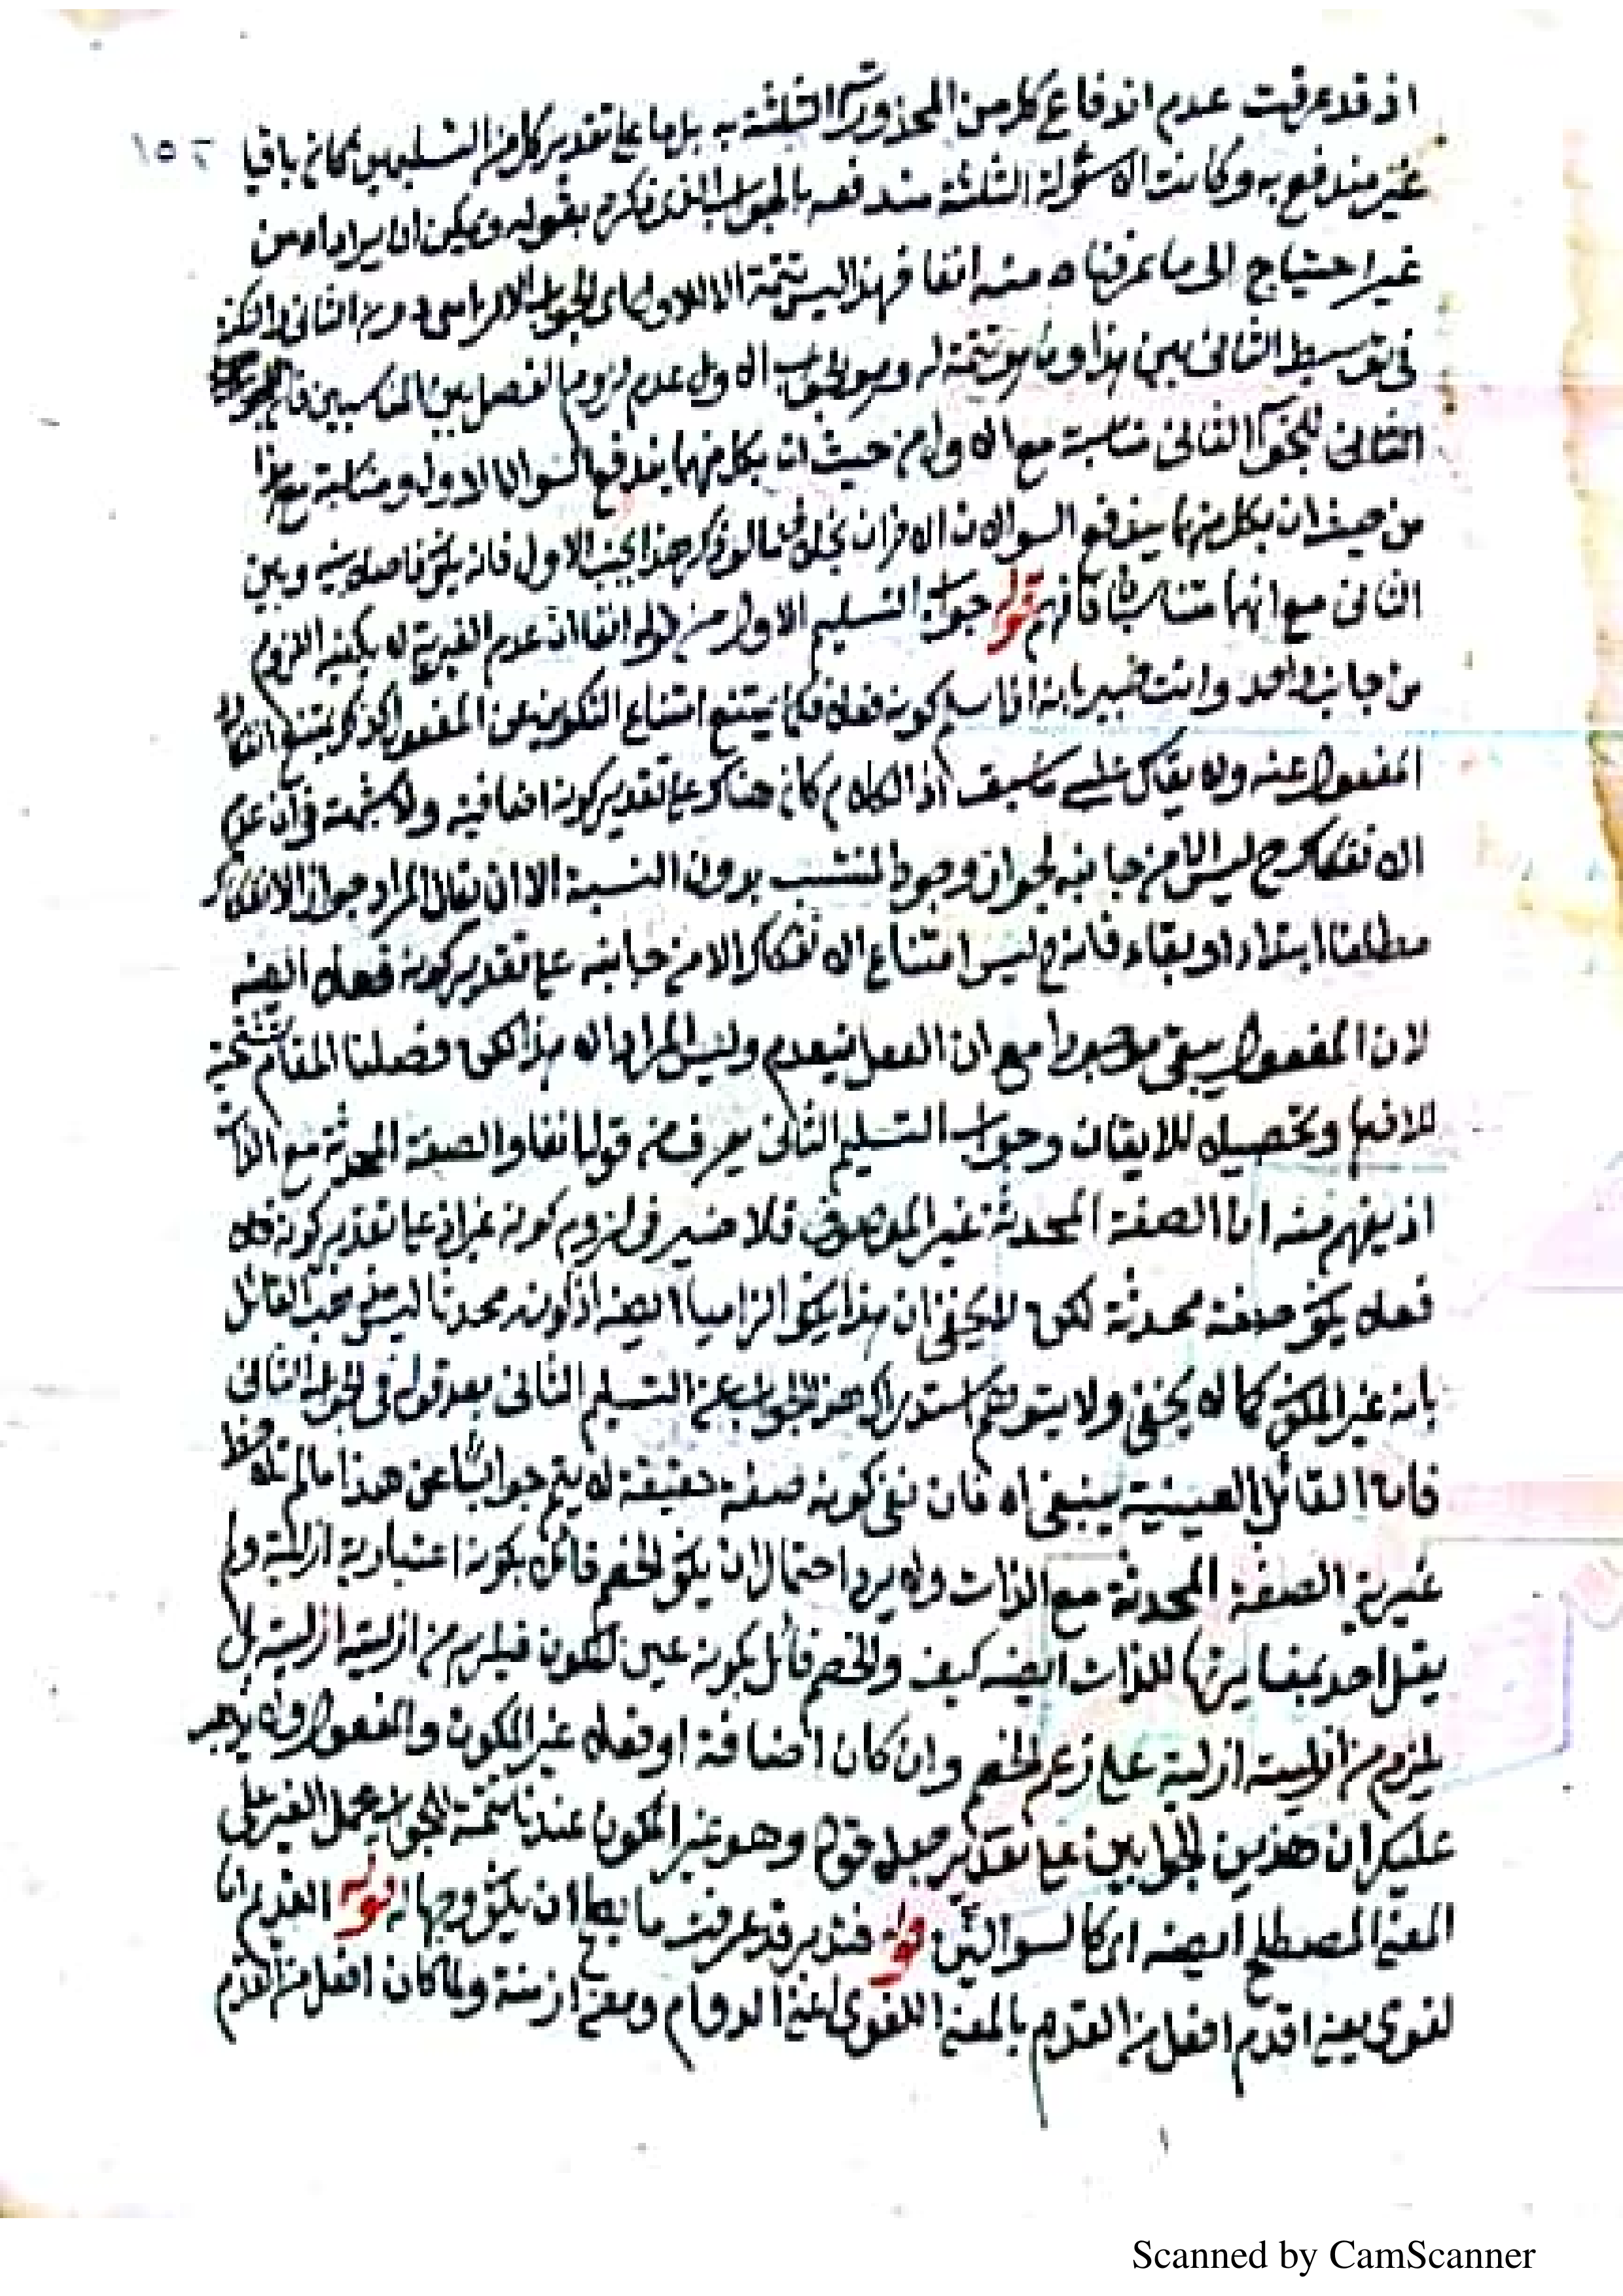 اذ قد عرفت عدم اندفاع كل من المحذورات الثلثة به بل ما على تقدير كل من التسليمين كان باقيا
١٥٢
غير مندفع به وكانت الاسئولة الثلثة مندفعة بالجواب الذى ذكره بقوله ويمكن ان يراد اه من
غير احتياج الى ما عرفناه منه انفا فهذا ليس تتمة الا للاول اى الجواب الالزامى دون الثانى والنكتة
فى توسيط الثانى بين هذا وما هو تتمة له وهو الجواب الاول عدم لزوم الفصل بين المناسبين فان
الثانى مناسبة مع الاول من حيث ان بكل منهما يندفع السوال الاول ومناسبة مع هذا
من حيث ان بكل منهما يندفع السوالان الاخران بخلاف ما لو ذكر هذا بجنب الاول فانه يكون فاصلا بينه وبين
الثانى مع انهما متناسبان فافهم قوله جواب التسليم الاول من قوله انفا ان عدم الغيرية لا يكفيه اللزوم
من جانب واحد وانت خبير بانه اذا سلم كونه فعلا فكما يمتنع امتناع التكوين عن المفعول كذلك يمتنع انفكاك
المفعول عنه ولا يقاس على ما سبق اذ الكلام كان هناك على تقدير كونه اضافية ولا شبهة فى ان عدم
الانفكاك ح ليس الا من جانبه لجواز وجود المنتسب بدون النسبة الا ان يقال المراد جواز الانفكاك
مطلقا ابتداء او بقاء فانه ح ليس امتناع الانفكاك الا من جانبه على تقدير كونه فعلا ايضه
لان المفعول يبقى موجودا مع ان الفعل ينعدم وليس المراد الا هذا لكن فصلنا المقام
للافهام وتحصيلا للايقان وجواب التسليم الثانى يعرف من قوله انفا والصفة المحدثة مع الذات
اذ يفهم منه ان الصفة المحدثة غير الموصوف فلا ضير فى لزوم كونه غير اذ على تقدير كونه
فعلا يكون صفة محدثة لكن لا يخفى ان هذا يكون الزاميا ايضه اذ كونه محدثا ليس مذهب القائل
بانه غير المكون كما لا يخفى ولا يتوهم استدراك هذا الجواب عن التسليم الثانى بعد قوله فى الجواب الثانى
فاما القائل بالعينية ينبغى اه فان نفى كونه صفة حقيقة لا يتم جوابا عن هذا ما لم يلاحظ
غيرية الصفة المحدثة مع الذات ولا يرد احتمال ان يكون الخصم قائلا بكونه اعتبارية ازلية ولم
يقل احد بمغايرتها للذات ايضه كيف والخصم قائل بكونه عين المكون فيلزم من ازليته ازليته بل
يلزم من ازليته ازلية على زعم الخصم وان كان اضافة او فعلا غير المكون والمفعول ولا يذهب
عليك ان هذين الجوابين على تقدير جعل قوله وهو غير المكون عندنا تتمة للجواب يحمل الغير على
المعنى المصطلح ايضه اى كالسوالين قوله فتدبر قد عرفت ما يصلح ان يكون وجها له قوله القديم اما
لغوى يعنى اقدم افعل من القدم بالمعنى اللغوى اعنى الدوام ومعنى ازمنة ولما كان افعل من القدم
Scanned by CamScanner